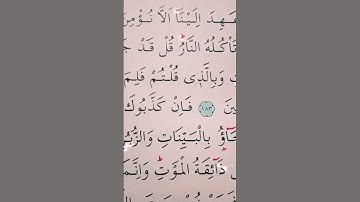 عَهِدَ اِلَيْنَٓا اَلَّا نُؤْمِنَ
تَأْكُلُهُ النَّارُۜ قُلْ قَدْ
وَبِالَّذ۪ي قُلْتُمْ فَلِمَ
﴿١٨٣﴾ فَاِنْ كَذَّبُوكَ
بِالْبَيِّنَاتِ وَالزُّبُرِ
ذَٓائِقَةُ الْمَوْتِۜ وَاِنَّمَا